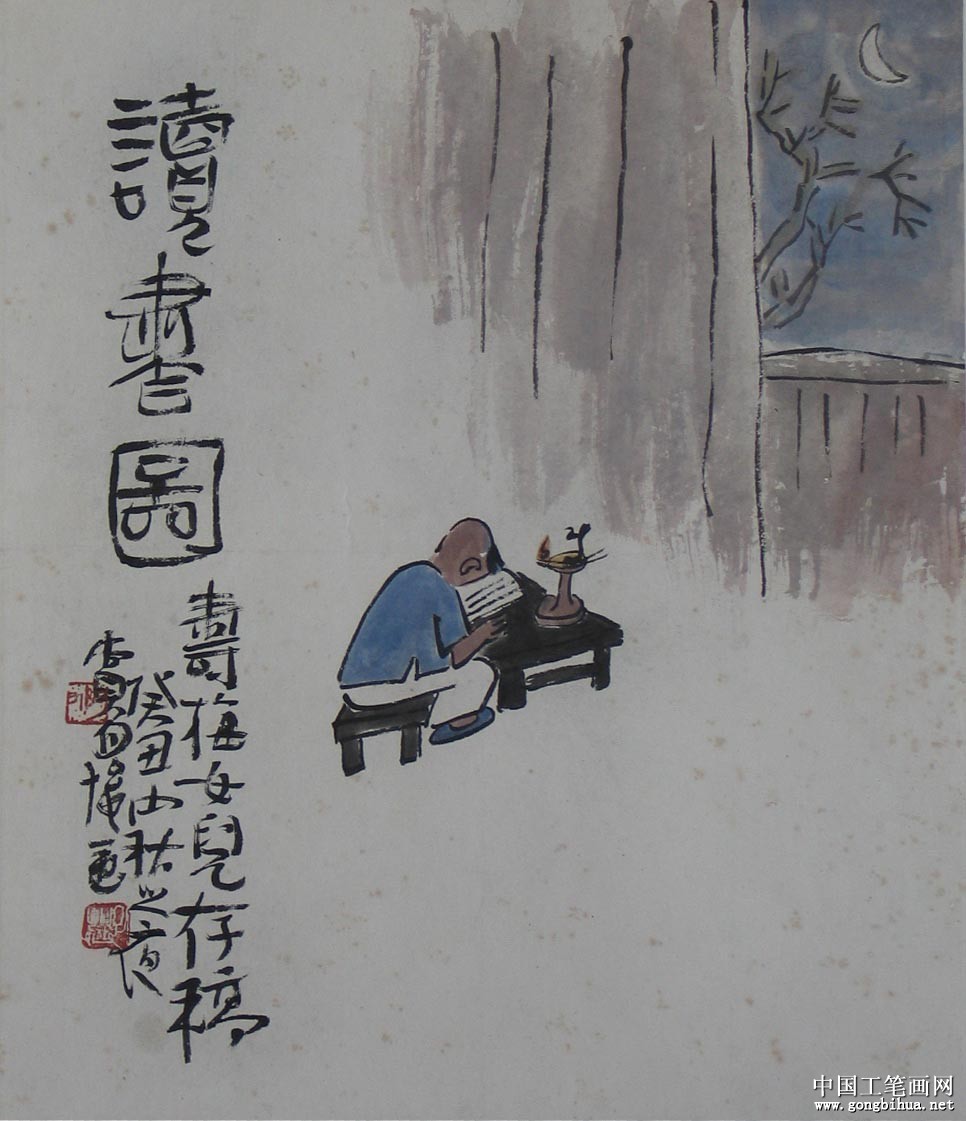 讀書圖
壽梅女兒存稿
癸丑中秋之夜
畫
中国工笔画网
www.gongbihua.net